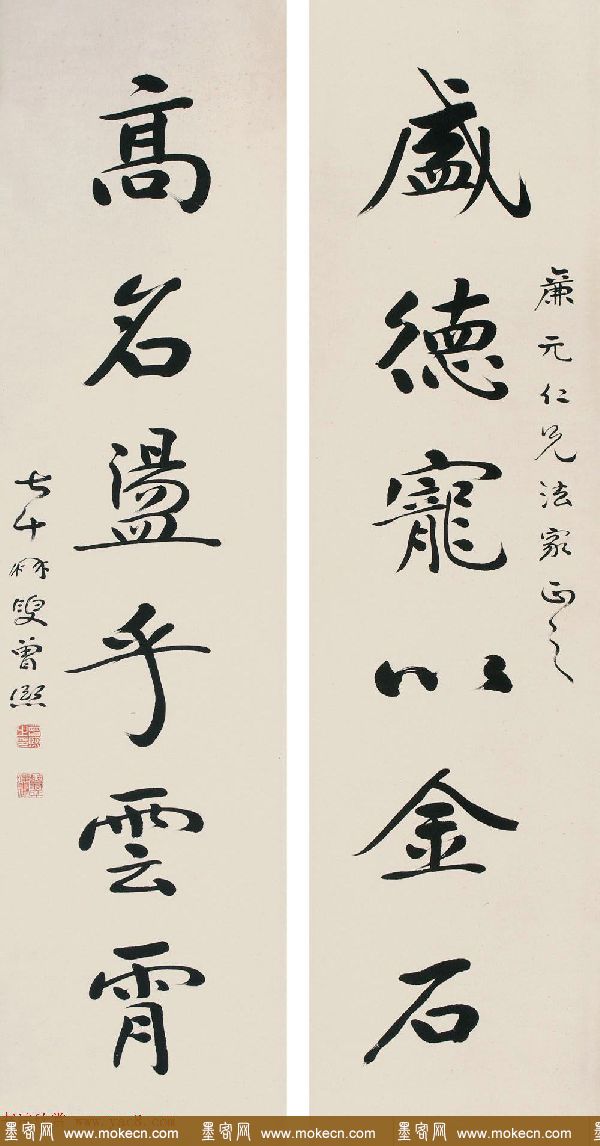 廉元仁兄法家正之
盛德寵以金石
高名盪乎雲霄
七十叟曾熙
www.yac8.com
墨客网 www.mokecn.com 墨客网 www.mokecn.com 墨客网 www.mokecn.com